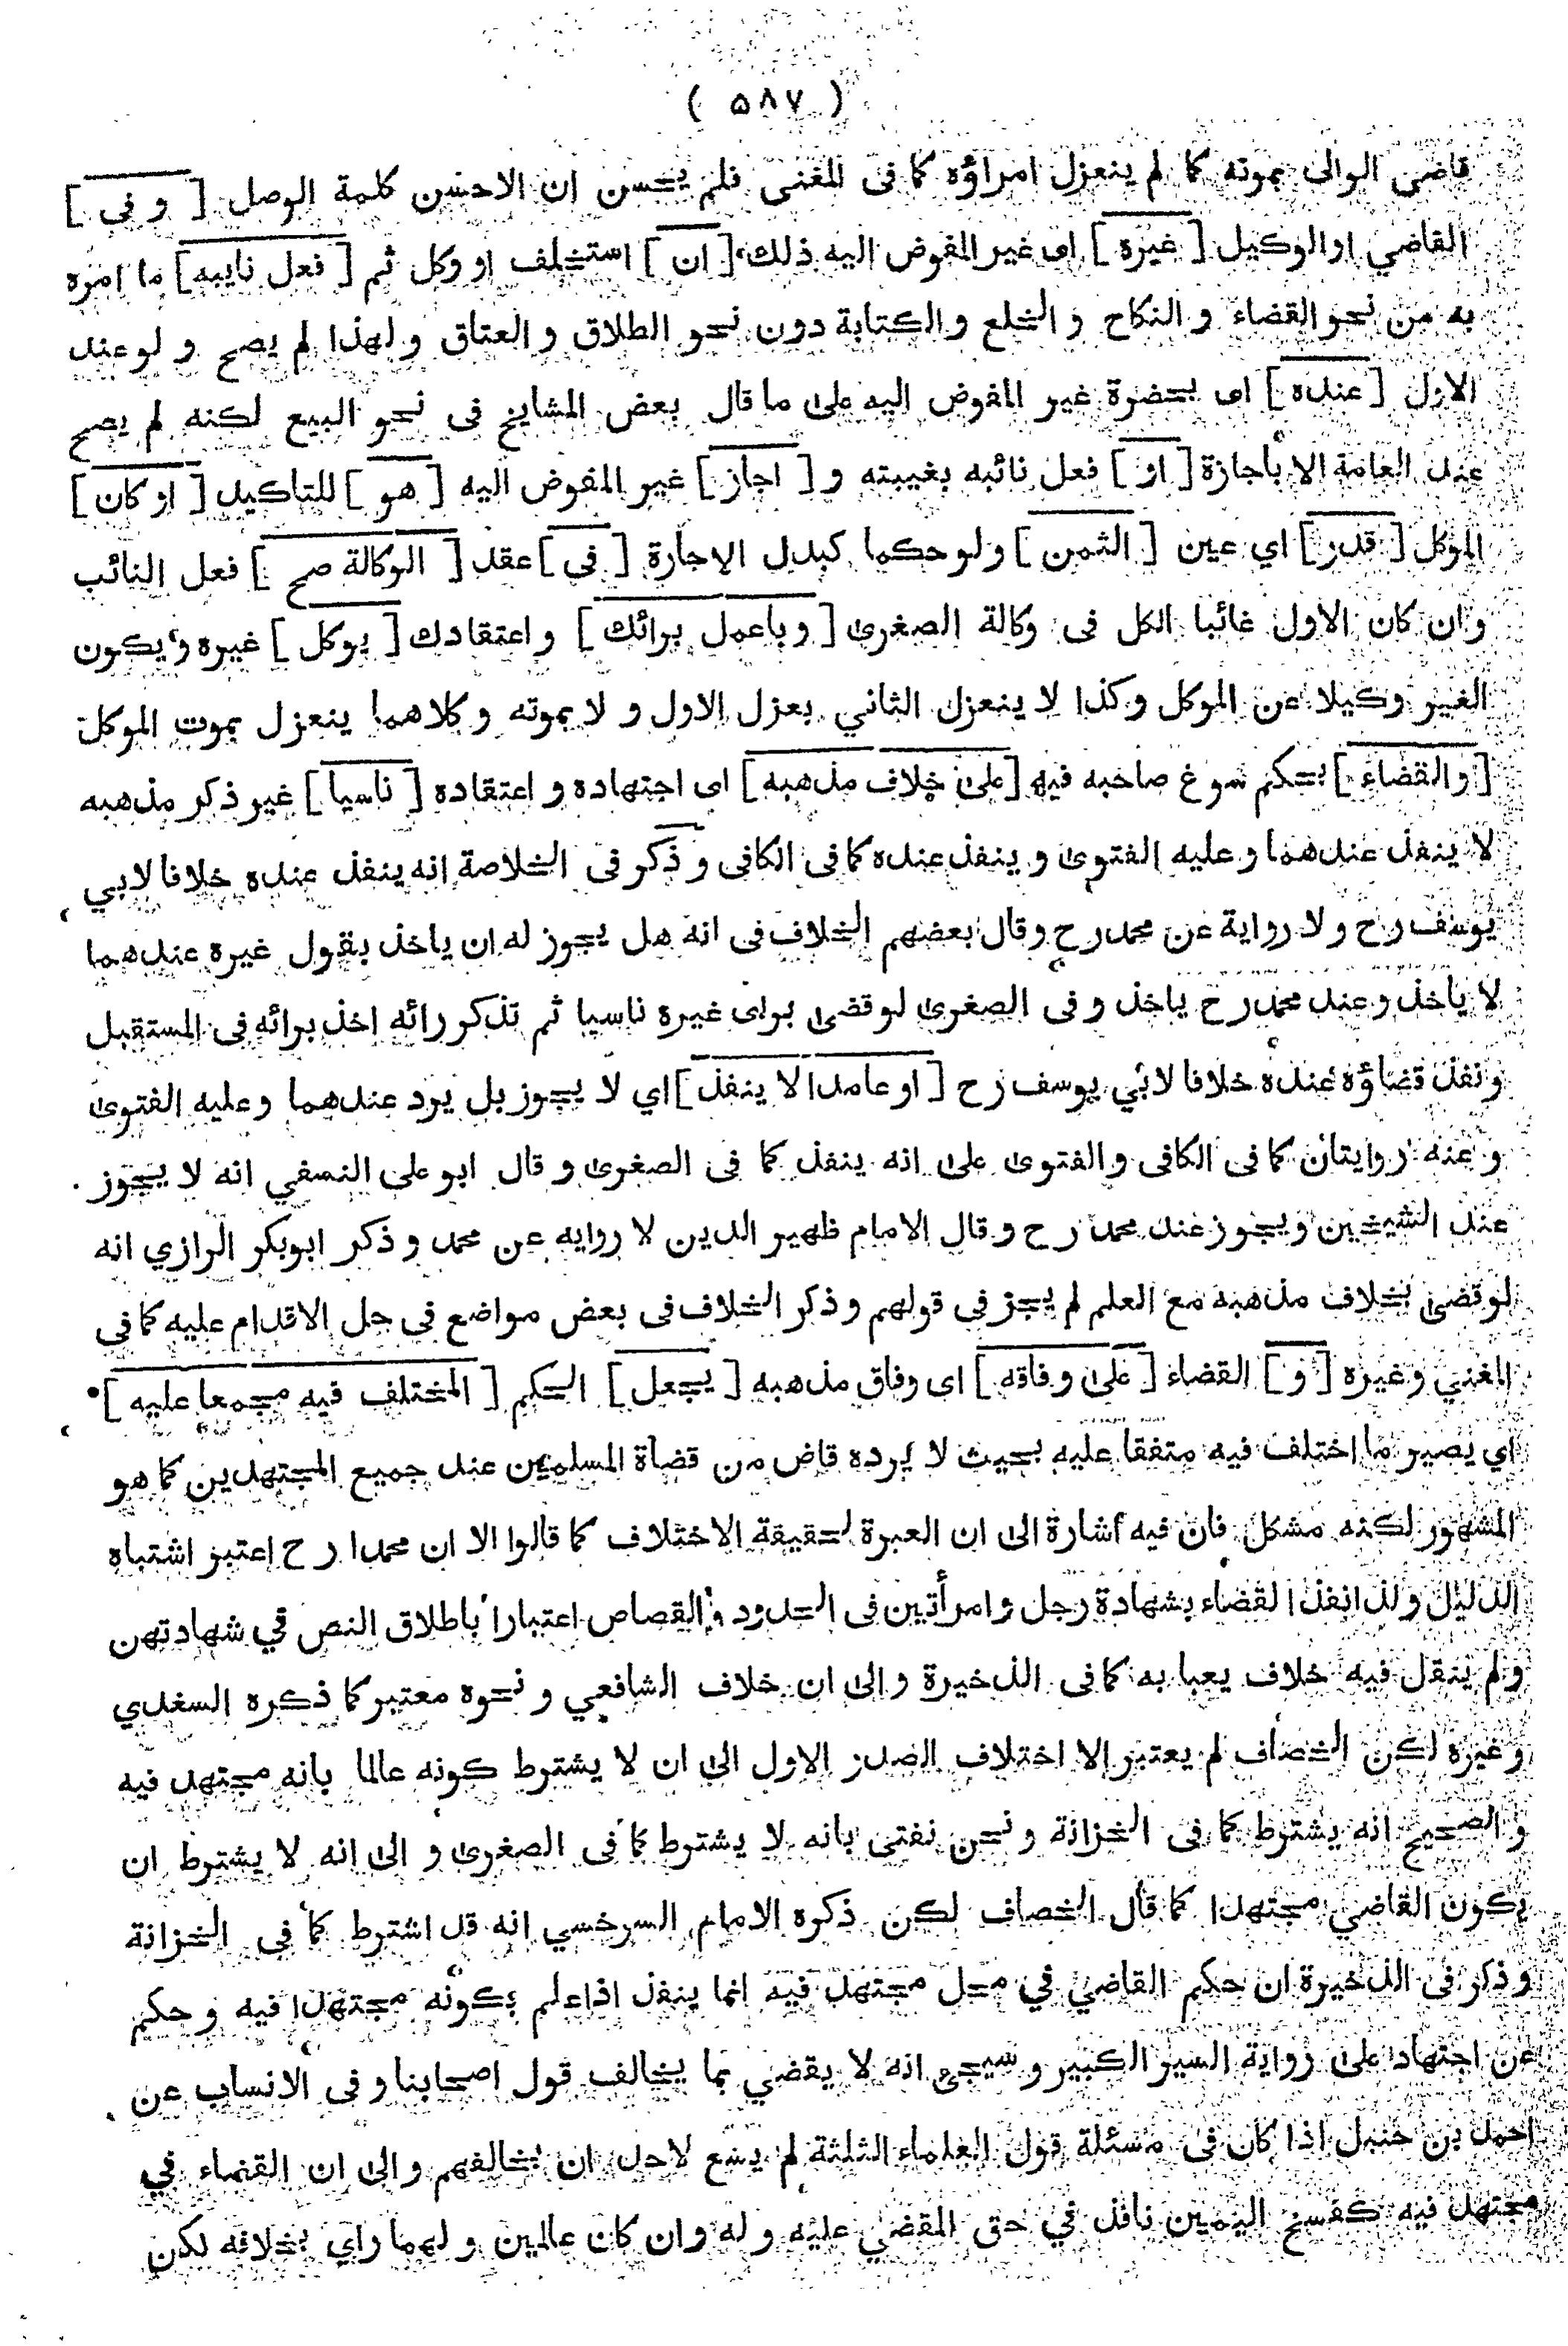 ( ۵۸۷ )
قاضى الوالى بموته كما لم ينعزل امراؤه كما فى المغنى فلم يحسن ان الاحسن كلمة الوصل [ و فى ]
القاضي اوالوكيل [ غيره ] اى غير المفوض اليه ذلك [ ان ] استخلف او وكل ثم [ فعل نايبه ] ما امره
به من نحو القضاء و النكاح و الخلع و الكتابة دون نحو الطلاق و العتاق و لهذا لم يصح و لو عند
الاول [ عنده ] اى بحضرة غير المفوض اليه على ما قال بعض المشايخ فى نحو البيع لكنه لم يصح
عند العامة الا باجازة [ او ] فعل نائبه بغيبته و [ اجاز ] غير المفوض اليه [ هو ] للتاكيد [ او كان ]
الموكل [ قدر ] اي عين [ الثمن ] ولوحكما كبدل الاجارة [ فى ] عقد [ الوكالة صح ] فعل النائب
وان كان الاول غائبا الكل فى وكالة الصغرى [ وباعمل برائك ] و اعتقادك [ يوكل ] غيره ويكون
الغير وكيلا عن الموكل وكذا لا ينعزل الثاني بعزل الاول و لا بموته و كلاهما ينعزل بموت الموكل
[ والقضاء ] بحكم سوغ صاحبه فيه [ على خلاف مذهبه ] اى اجتهاده و اعتقاده [ ناسيا ] غير ذكر مذهبه
لا ينفذ عندهما وعليه الفتوى و ينفذ عنده كما فى الكافى و ذكر فى الخلاصة انه ينفذ عنده خلافا لابي
يوسف رح ولا رواية عن محمد رح وقال بعضهم الخلاف فى انه هل يجوز له ان ياخذ بقول غيره عندهما
لا ياخذ وعند محمد رح ياخذ و فى الصغرى لو قضى براى غيره ناسيا ثم تذكر رائه اخذ برائه فى المستقبل
ونفذ قضاؤه عنده خلافا لابي يوسف رح [ اوعامدا لا ينفذ ] اي لا يجوز بل يرد عندهما وعليه الفتوى
وعنه روايتان كما فى الكافى والفتوى على انه ينفذ كما فى الصغرى و قال ابو على النسفي انه لا يجوز
عند الشيخين ويجوز عند محمد رح و قال الامام ظهير الدين لا روايه عن محمد و ذكر ابوبكر الرازي انه
لو قضى بخلاف مذهبه مع العلم لم يجز فى قولهم و ذكر الخلاف فى بعض مواضع فى حل الاقدام عليه كما فى
المغني وغيره [ و ] القضاء [ على وفاقه ] اى وفاق مذهبه [ يجعل ] الحكم [ المختلف فيه مجمعا عليه ]
اي يصير ما اختلف فيه متفقا عليه بحيث لا يرده قاض من قضاة المسلمين عند جميع المجتهدين كما هو
المشهور لكنه مشكل فان فيه اشارة الى ان العبرة لحقيقة الاختلاف كما قالوا الا ان محمدا رح اعتبر اشتباه
الدليل ولذا نفذ القضاء بشهادة رجل وامرأتين فى الحدود والقصاص اعتبارا باطلاق النص في شهادتهن
ولم ينقل فيه خلاف يعبا به كما فى الذخيرة والى ان خلاف الشافعي و نحوه معتبر كما ذكره السغدي
وغيره لكن الخصاف لم يعتبر الا اختلاف الصدر الاول الى ان لا يشترط كونه عالما بانه مجتهد فيه
و الصحيح انه يشترط كما فى الخزانة و نحن نفتى بانه لا يشترط كما فى الصغرى و الى انه لا يشترط ان
يكون القاضي مجتهدا كما قال الخصاف لكن ذكره الامام السرخسي انه قد اشترط كما فى الخزانة
وذكر فى الذخيرة ان حكم القاضي في محل مجتهد فيه انما ينفذ اذا علم بكونه مجتهدا فيه و حكم
عن اجتهاد على رواية السير الكبير و سيجى انه لا يقضي بما يخالف قول اصحابنا و فى الانساب عن
احمد بن حنبل اذا كان فى مسئلة قول العلماء الثلثة لم يسع لاحد ان يخالفهم و الى ان القضاء في
مجتهد فيه كفسخ اليمين نافذ في حق المقضي عليه و له وان كان عالمين و لهما راي بخلافه لكن